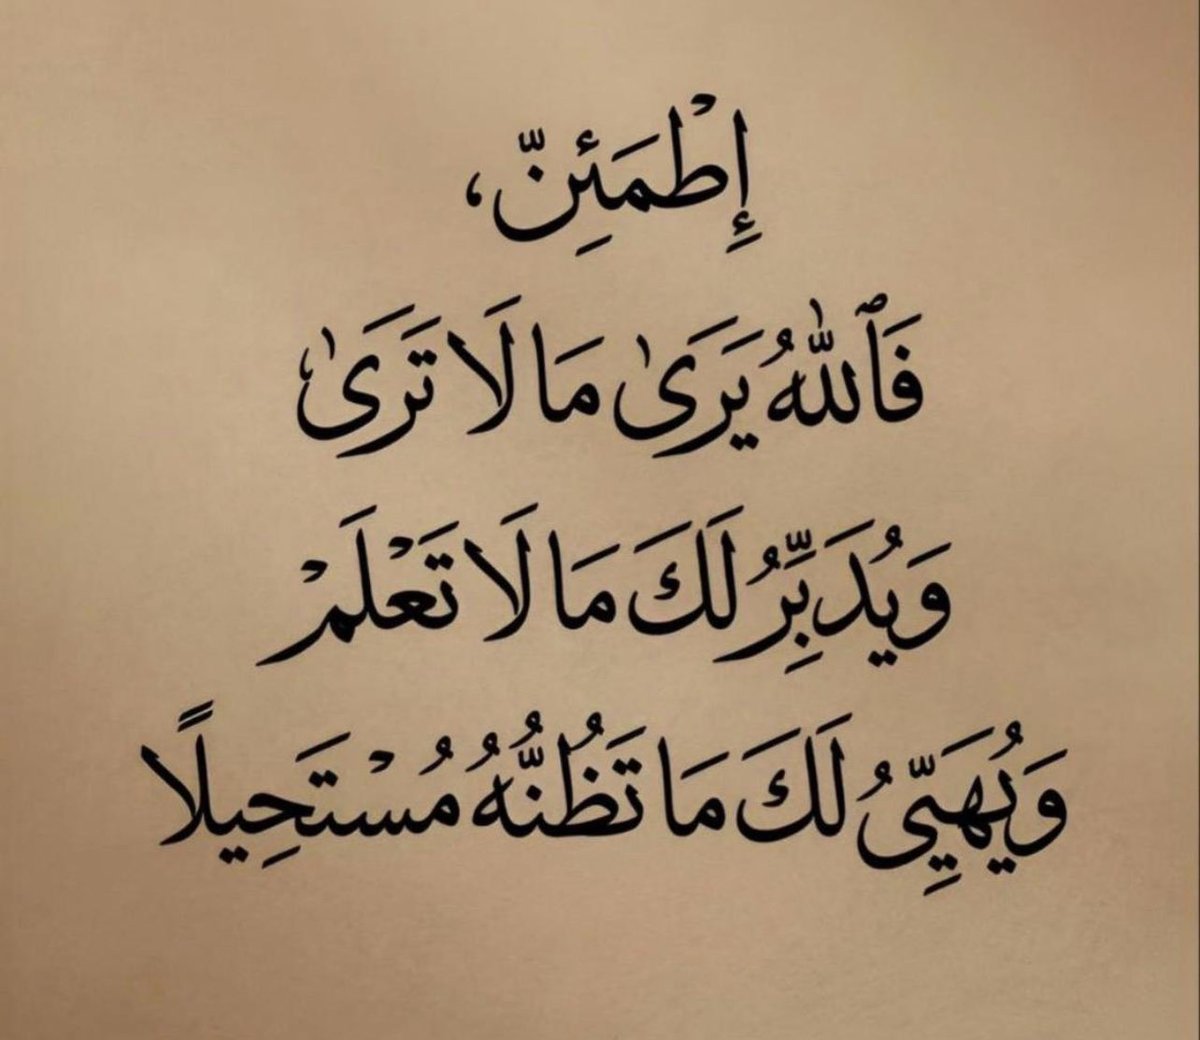 إِطْمَئِنّ،
فَٱللّٰهُ يَرَىٰ مَا لَا تَرَىٰ،
وَيُدَبِّرُ لَكَ مَا لَا تَعْلَمْ
وَيُهَيِّئُ لَكَ مَا تَظُنُّهُ مُسْتَحِيلًا